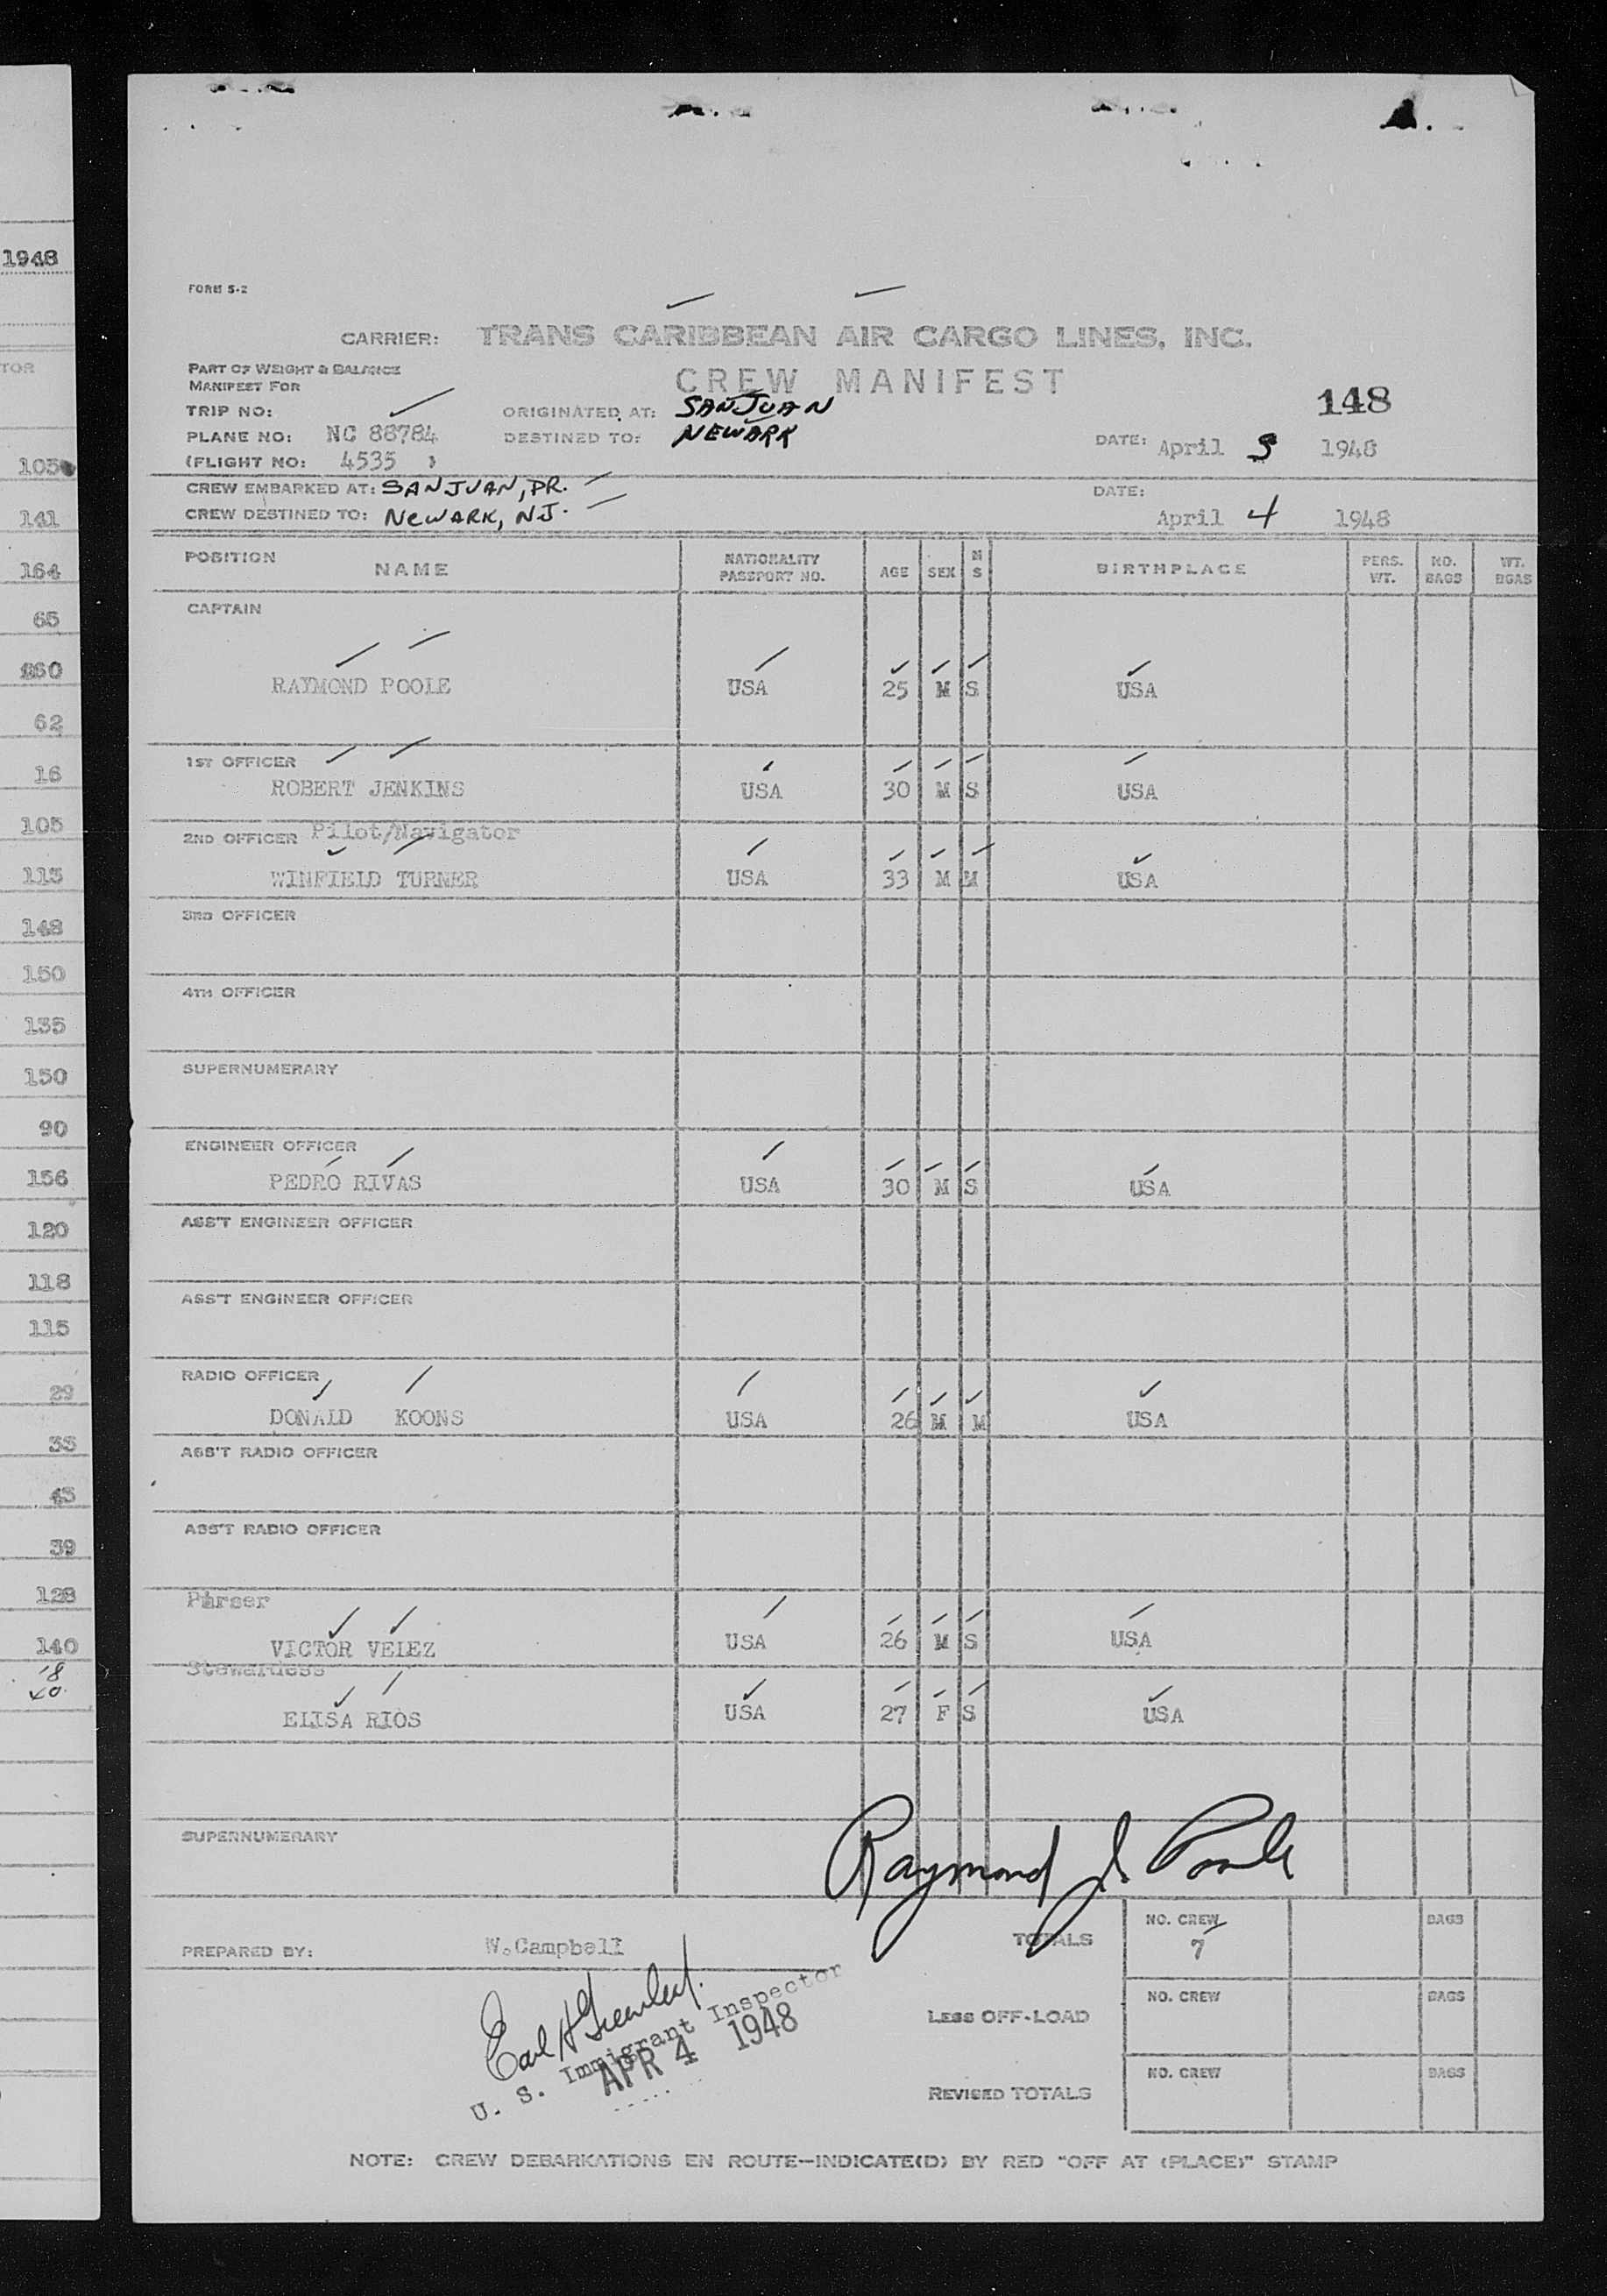 1948
TOR
105
141
164
65
62
16
105
115
148
150
135
150
90
156
120
118
115
29
35
45
39
128
140
18
40
FORM S-2
CARRIER: TRANS CARIBBEAN AIR CARGO LINES, INC.
PART OF WEIGHT & BALANCE
MANIFEST FOR
CREW MANIFEST
148
TRIP NO:
ORIGINATED AT: SAN JUAN
PLANE NO: NC 88784
DESTINED TO: NEWARK
DATE: April 3 1948
(FLIGHT NO: 4535 )
CREW EMBARKED AT: SAN JUAN, PR.
DATE:
CREW DESTINED TO: NEWARK, NJ.
April 4 1948
POSITION NAME NATIONALITY PASSPORT NO. AGE SEX M S BIRTHPLACE PERS. WT. NO. BAGS WT. BGAS
CAPTAIN
RAYMOND POOLE USA 25 M S USA
1ST OFFICER
ROBERT JENKINS USA 30 M S USA
2ND OFFICER Pilot/Navigator
WINFIELD TURNER USA 33 M M USA
3RD OFFICER
4TH OFFICER
SUPERNUMERARY
ENGINEER OFFICER
PEDRO RIVAS USA 30 M S USA
ASS'T ENGINEER OFFICER
ASS'T ENGINEER OFFICER
RADIO OFFICER
DONALD KOONS USA 26 M M USA
ASS'T RADIO OFFICER
ASS'T RADIO OFFICER
Purser
VICTOR VELEZ USA 26 M S USA
Stewardess
ELISA RIOS USA 27 F S USA
SUPERNUMERARY
Raymond J. Poole
PREPARED BY: W.Campbell
TOTALS NO. CREW 7 BAGS
Earl H
U. S. Immigrant Inspector
APR 4 1948
LESS OFF-LOAD NO. CREW BAGS
REVISED TOTALS NO. CREW BAGS
NOTE: CREW DEBARKATIONS EN ROUTE—INDICATE(D) BY RED "OFF AT (PLACE)" STAMP